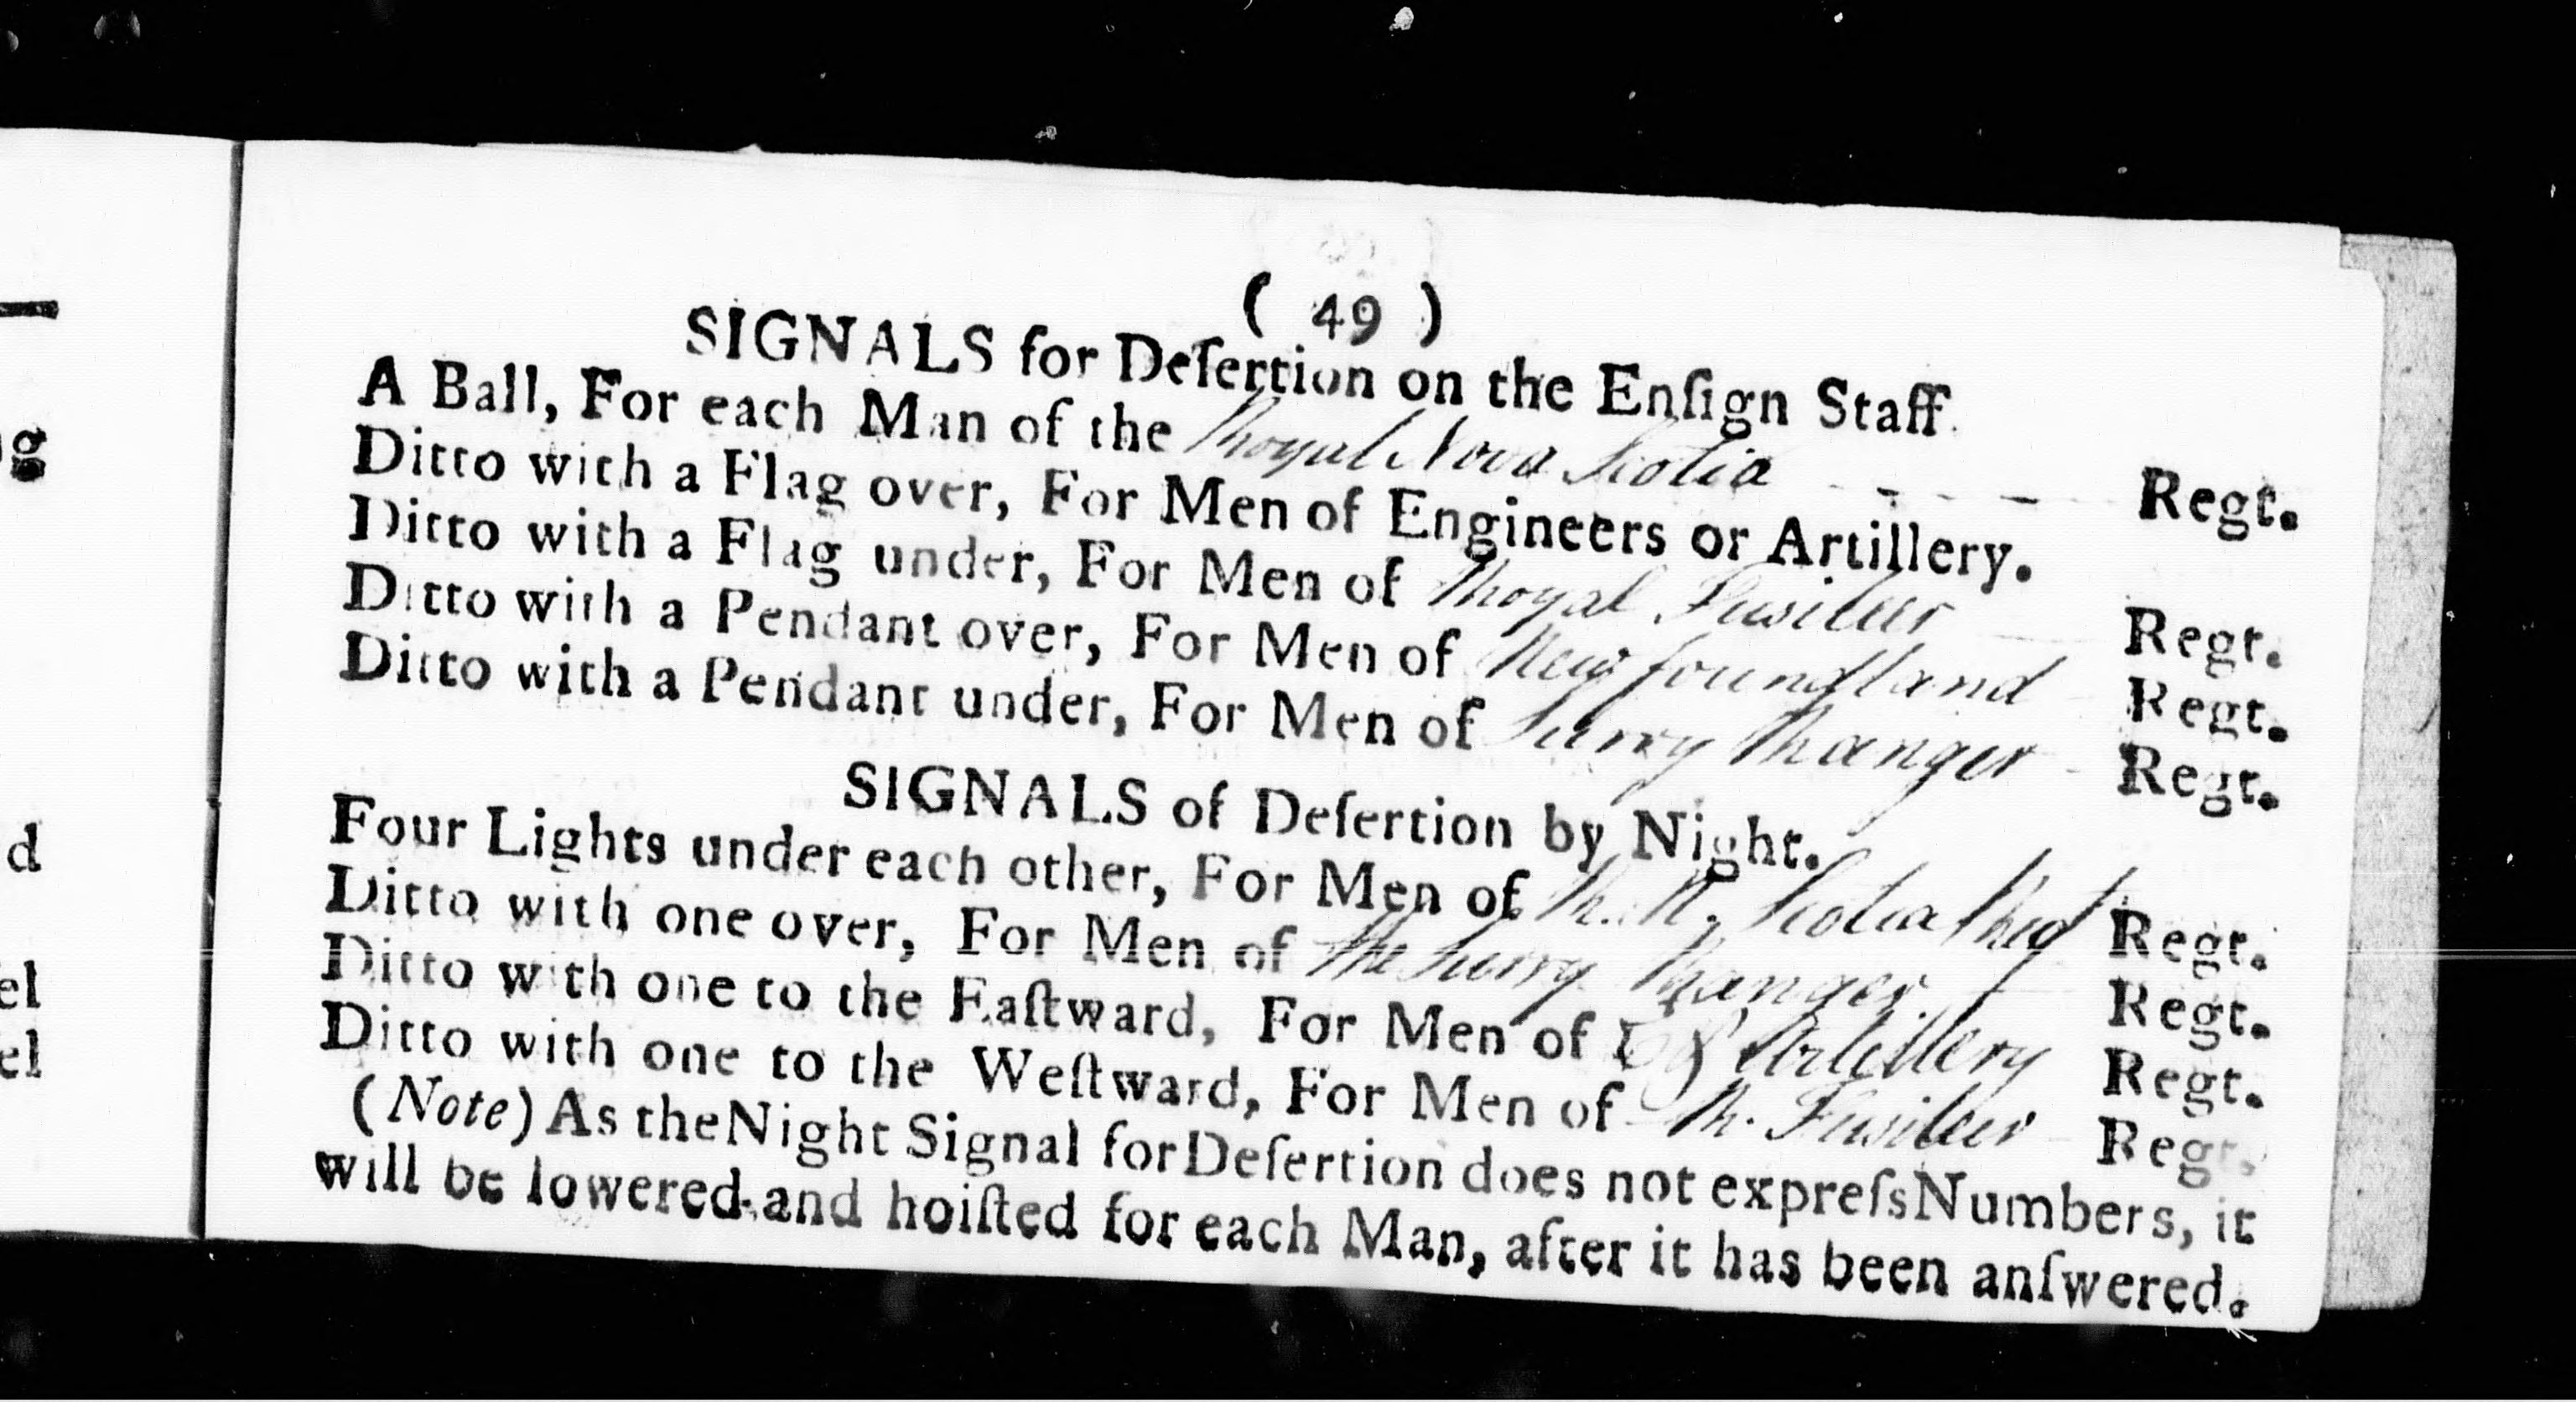 ( 49 )
SIGNALS for Deſertion on the Enſign Staff.
A Ball, For each Man of the Royal Nova Scotia - - - - Regt.
Ditto with a Flag over, For Men of Engineers or Artillery.
Ditto with a Flag under, For Men of Royal Fusileer Regt.
Ditto with a Pendant over, For Men of Newfoundland Regt.
Ditto with a Pendant under, For Men of Surry Ranger Regt.
SIGNALS of Deſertion by Night.
Four Lights under each other, For Men of R. N. Scotia Regt Regt.
Ditto with one over, For Men of the Surry Ranger Regt.
Ditto with one to the Eaſtward, For Men of Artillery Regt.
Ditto with one to the Weſtward, For Men of R. Fusileer Regt.
(Note) As the Night Signal for Deſertion does not expreſs Numbers, it
will be lowered and hoiſted for each Man, after it has been anſwered.
g
d
el
el